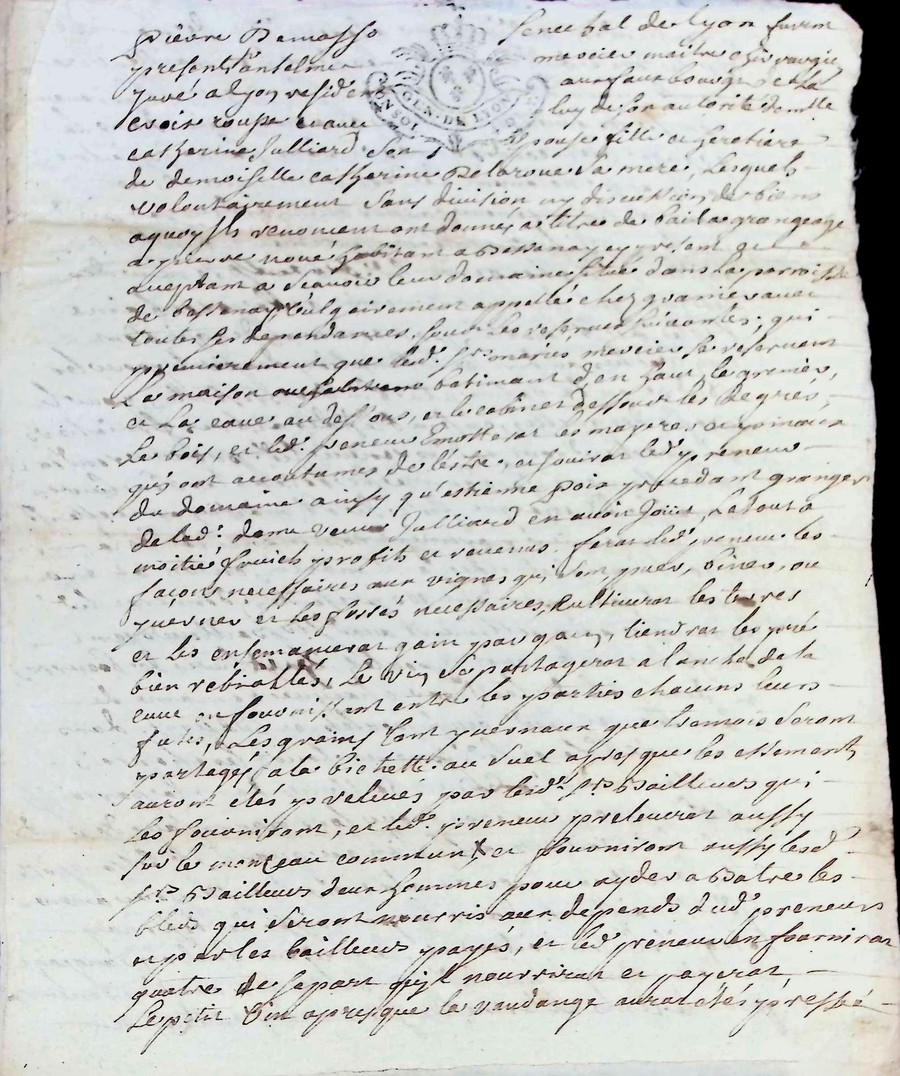 pierre Damasso Senechal de Lyon furent
present anselme mercier maitre chirurgie
juré a lyon resident aux faux bourgs de la
croix rousse et avec luy de son autorité demlle
catherine Julliard Son Epouse fille et heretiere
GEN. DE LYON
de demoiselle catherine Delaroue sa mere, Lesquels
volontairement sans division ny discution de biens
aquoy ils renoncent ont donnés a titre de bail a grangeage
a pierre noué habitant a Bessenay cy present et
aceptant a scavoir leur domaine situé dans la parroisse
de bessenay vulgairement appellé chez avec
toutes ses dependances, sous les reserves suivantes; qui
premierement que lesd. Srs mariés mercier se reservent
La maison batimant d'en haut, le grenier,
et La cave au dessous, et le cabinet dessous les degrés,
Le bois, et led. preneur Emotterat les mayeres et
qui ont acoutumes de l'estre, et jouirat led. preneur
du domaine ainsy qu'estienne poix precedant granger
de lad. dame veuve Julliard en avoit Jouit, Le tout a
moitié fruich profits et revenus. ferat led. preneur les
façons necessaires aux vignes qui sont puer, biner, ou
yverner et les fossés necessaires, Cultiverat les terres
et les ensemancerat gain par gain, tiendrat les pré
bien retrallés, Le vin Se partagerat a l'anche de la
cuve en fournissant entre les parties chacuns leurs
futes, Les grains tant yvernaux que tramois Seront
partagés a la bichette au Suel apres que les
auront étés prelevés par lesd. Srs Bailleurs qui
les fourniront, et led. preneur preleverat aussy
sur le monceau commun X et fourniront aussy lesd.
Srs Bailleurs deux hommes pour ayder a Batre les
bleds qui seront nourris aux depends dud. preneur
et par les bailleurs payés, et led. preneur en fournirat
quatre de sa part qu'il nourrirat et payerat
Le petit vin apres que la vandange aurat étés pressé